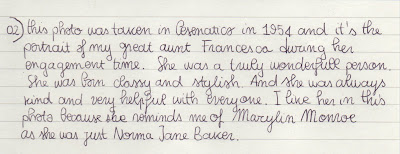 02) this photo was taken in Cesenatico in 1954 and it's the
portrait of my great aunt Francesca during her
engagement time. She was a truly wonderfull person.
She was born classy and stylish. And she was always
kind and very helpful with everyone. I like her in this
photo because she reminds me of Marylin Monroe
as she was just Norma Jane Baker.